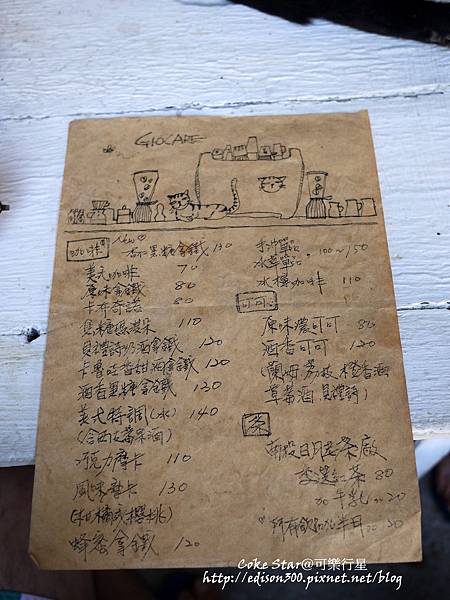 GIOCARE
咖啡
New 杏仁黑糖拿鐵 130
美式咖啡 70
原味拿鐵 80
卡布奇諾 80
焦糖瑪琪朵 110
貝禮詩奶酒拿鐵 120
卡魯哇香甜酒拿鐵 120
酒香黑糖拿鐵 130
美式特調(冰) 140
(含西班牙茶酒)
巧克力摩卡 110
風味摩卡 130
蜂蜜拿鐵 120
手沖單品 100~150
冰單品
冰咖啡 110
可可
原味濃可可 80
酒香可可 120
(蘭姆 荔枝 橙香酒
草莓酒 貝禮詩)
茶
南投日月老茶廠
紅茶 80
加牛乳 20
所有飲品 20
Coke Star@可樂行星
http://edison300.pixnet.net/blog